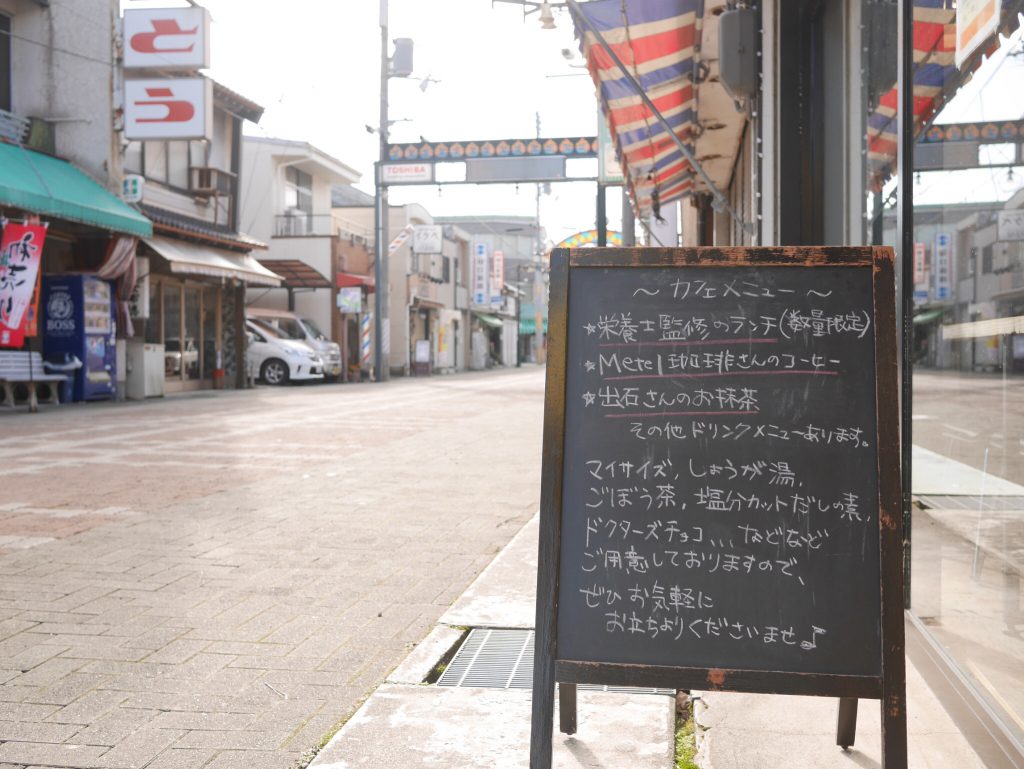 と
う
TOSHIBA
BOSS
～ カフェメニュー ～
☆栄養士監修のランチ(数量限定)
☆Metel珈琲さんのコーヒー
☆出石さんのお抹茶
その他ドリンクメニューあります。
マイサイズ、しょうが湯、
ごぼう茶、塩分カットだしの素、
ドクターズチョコ、、、などなど
ご用意しておりますので、
ぜひお気軽に
お立ちよりくださいませ♪